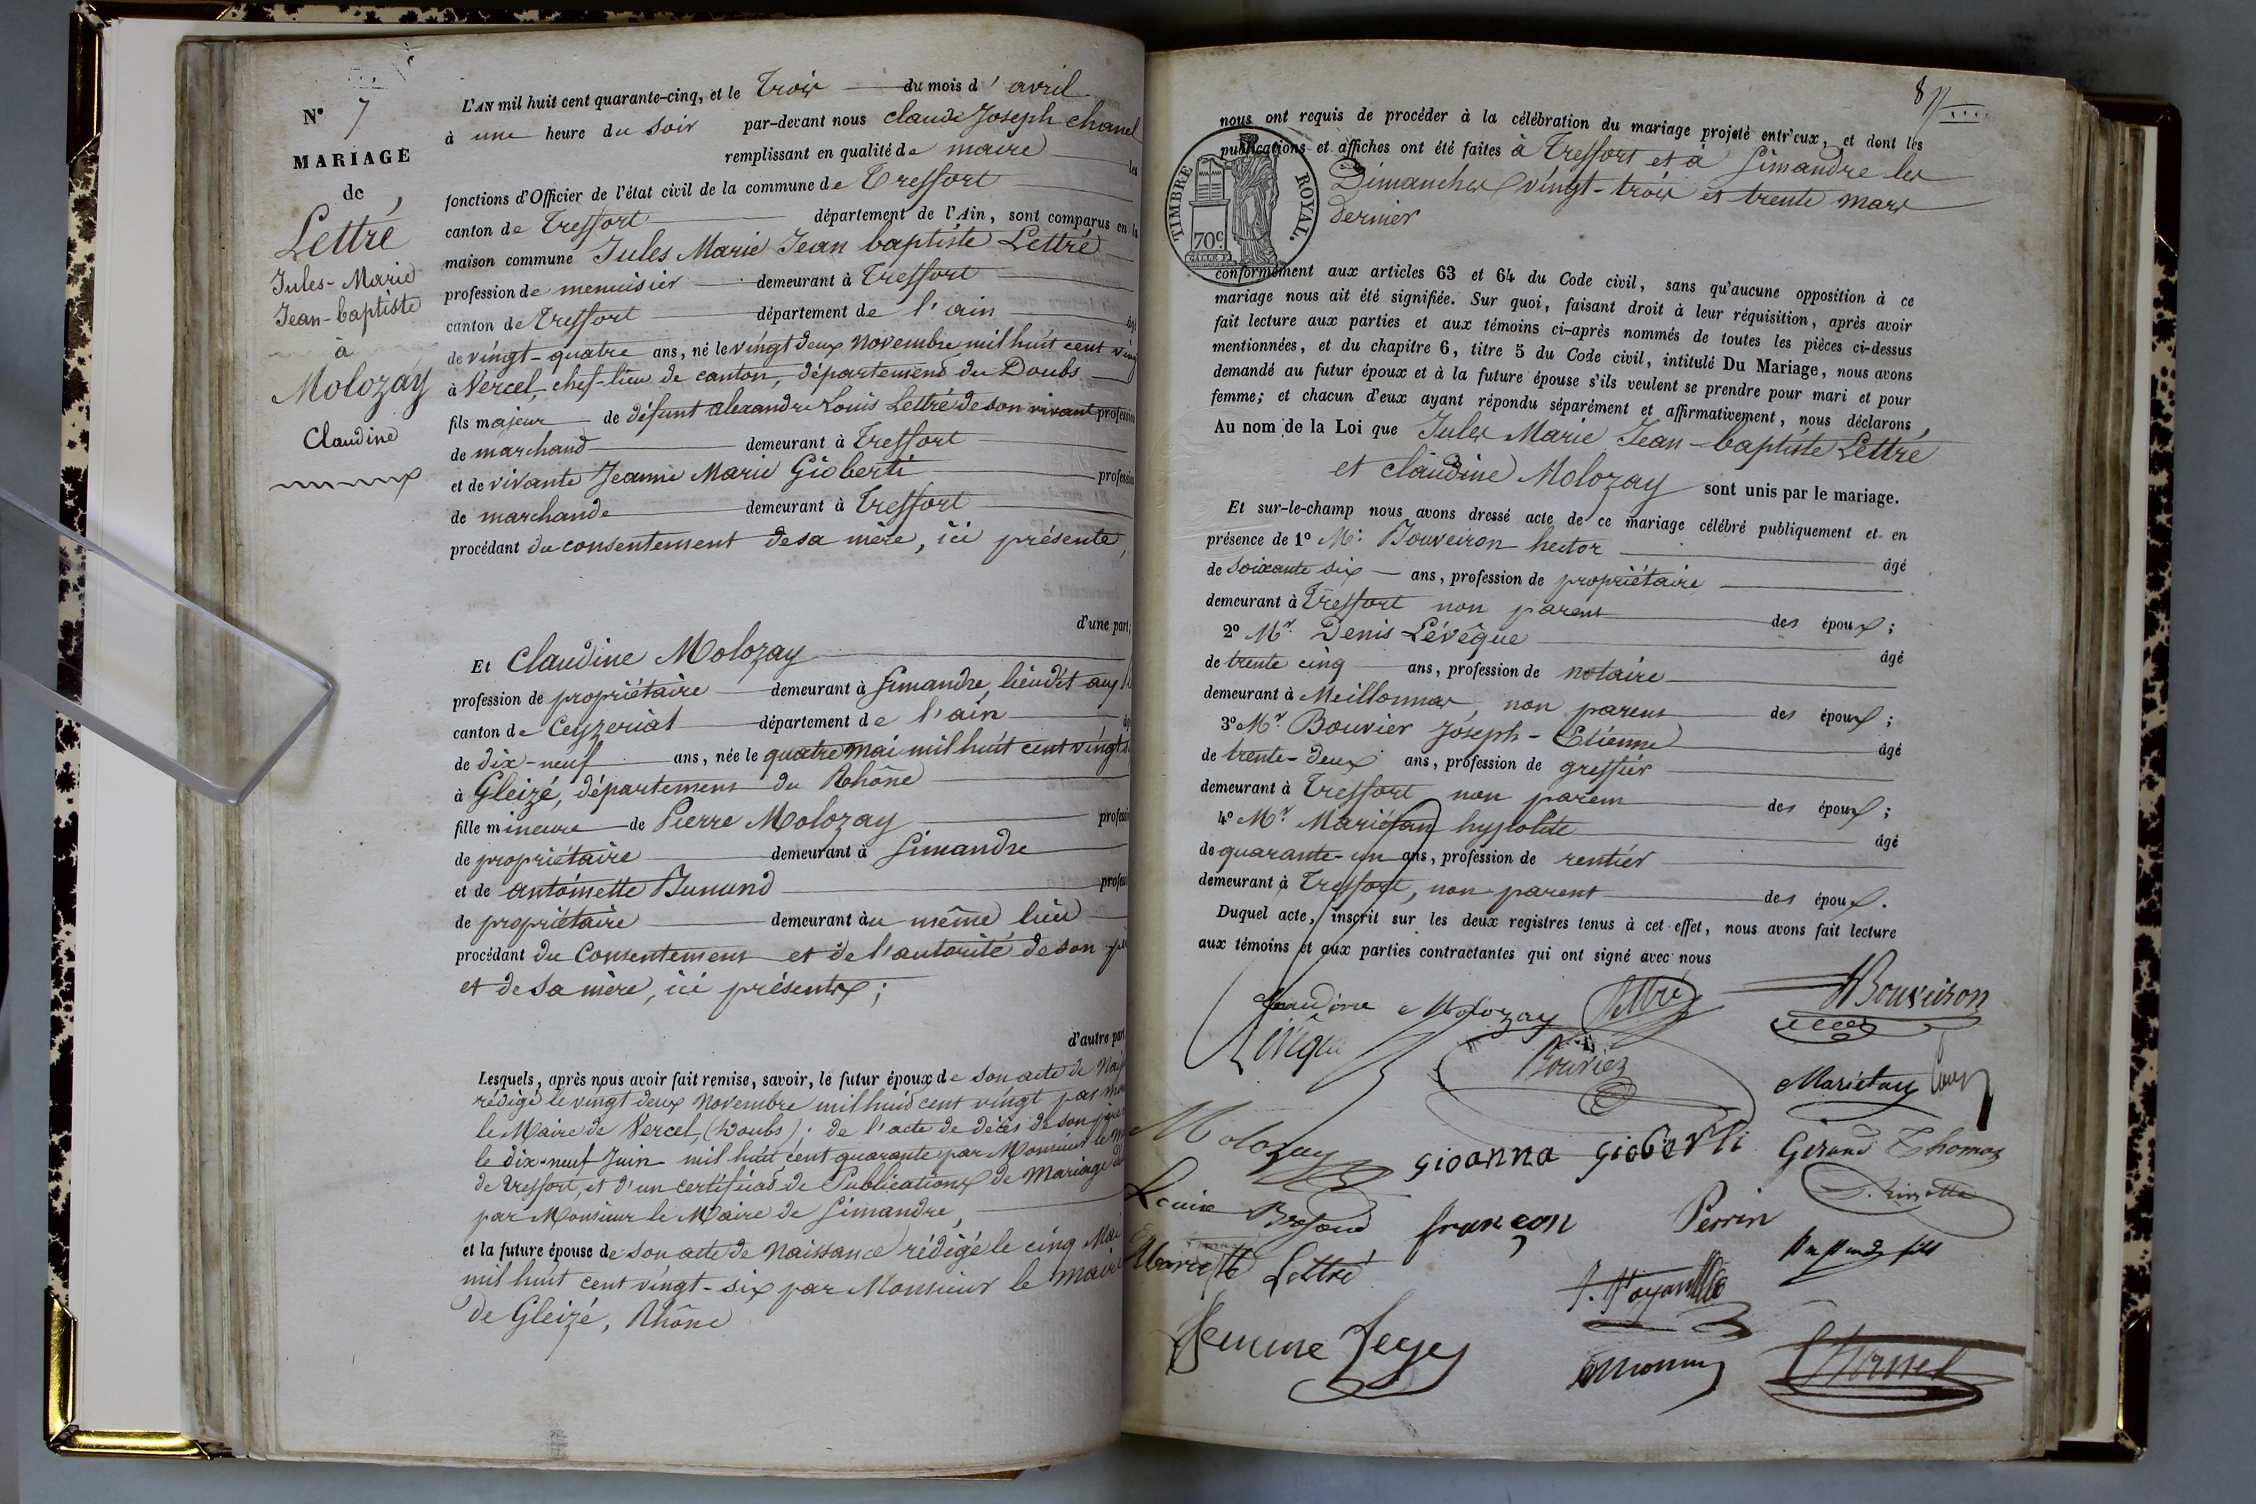 N° 7
MARIAGE
de
Lettré
Jules-Marie
Jean-baptiste
à
Molozay
Claudine
L'AN mil huit cent quarante-cinq, et le Trois du mois d'avril
à une heure du soir par-devant nous claude Joseph chanel
remplissant en qualité de maire les
fonctions d'Officier de l'état civil de la commune de Treffort
canton de Treffort département de l'Ain, sont comparus en la
maison commune Jules Marie Jean baptiste Lettré
profession de menuisier demeurant à Treffort
canton de Treffort département de l'ain âgé
de vingt-quatre ans, né le vingt deux Novembre mil huit cent ving
à Vercel, chef-lieu de canton, département du Doubs
fils majeur de défunt alexandre Louis Lettré de son vivant profession
de marchand demeurant à Treffort
et de vivante Jeanne Marie Gioberti profession
de marchande demeurant à Treffort
procédant du consentement de sa mère, ici présente,
d'une part;
Et Claudine Molozay
profession de propriétaire demeurant à Simandre, lieudit aux
canton de Ceyzeriat département de l'ain
de dix-neuf ans, née le quatre mai mil huit cent vingt
à Gleizé, département du Rhône
fille mineure de Pierre Molozay profession
de propriétaire demeurant à Simandre
et de antoinette Bunund profess
de propriétaire demeurant au même lieu
procédant du Consentement et de l'autorité de son
et de sa mère, ici présents;
d'autre part
Lesquels, après nous avoir fait remise, savoir, le futur époux de son acte de Nais
rédigé le vingt deux Novembre mil huit cent vingt par
le Maire de Vercel, (Doubs); de l'acte de décès de son père
le dix-neuf Juin mil huit cent quarante par Monsieur le
de Treffort, et d'un certificat de Publications de Mariage
par Monsieur le Maire de Simandre,
et la future épouse de son acte de Naissance rédigé le cinq Mai
mil huit cent vingt-six par Monsieur le maire
de Gleizé, Rhône
8
nous ont requis de procéder à la célébration du mariage projeté entr'eux, et dont les
publications et affiches ont été faites à Treffort et à Simandre les
Dimanches vingt-trois et trente mars
dernier
TIMBRE ROYAL.
70c
conformément aux articles 63 et 64 du Code civil, sans qu'aucune opposition à ce
mariage nous ait été signifiée. Sur quoi, faisant droit à leur réquisition, après avoir
fait lecture aux parties et aux témoins ci-après nommés de toutes les pièces ci-dessus
mentionnées, et du chapitre 6, titre 5 du Code civil, intitulé Du Mariage, nous avons
demandé au futur époux et à la future épouse s'ils veulent se prendre pour mari et pour
femme; et chacun d'eux ayant répondu séparément et affirmativement, nous déclarons,
Au nom de la Loi que Jules Marie Jean-baptiste Lettré
et claudine Molozay sont unis par le mariage.
Et sur-le-champ nous avons dressé acte de ce mariage célébré publiquement et en
présence de 1° Mr Bouveiron hector âgé
de soixante six ans, profession de propriétaire
demeurant à Treffort non parent des époux;
2° Mr. Denis Lévêque âgé
de trente cinq ans, profession de notaire
demeurant à Meillonnas, non parent des époux;
3° Mr Bouvier Joseph-Etienne âgé
de trente-deux ans, profession de greffier
demeurant à Treffort non parent des époux;
4° Mr. Mariétan hypolite âgé
de quarante-un ans, profession de rentier
demeurant à Treffort, non parent des époux.
Duquel acte, inscrit sur les deux registres tenus à cet effet, nous avons fait lecture
aux témoins et aux parties contractantes qui ont signé avec nous
Claudine Molozay Lettré HBouveiron
Lévêque Bouvier
Mariétan
Molozay gioanna gioberti Gerand Thomas
Louise françon Perrin
Lettré
fils
Chanel